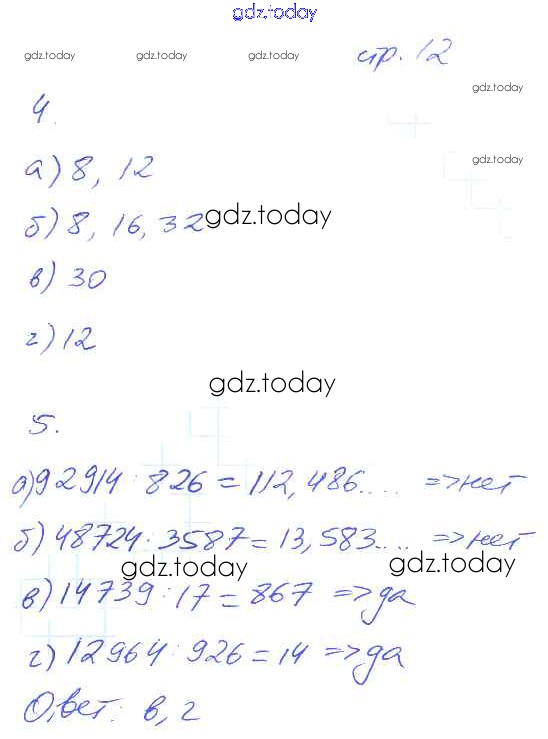 gdz.today
gdz.today gdz.today gdz.today стр. 12
gdz.today
4.
gdz.today
а) 8, 12
б) 8, 16, 32 gdz.today
в) 30
г) 12
gdz.today
5.
а) 92914 : 826 = 112,486.... => нет
б) 48724 : 3587 = 13,583.... => нет
gdz.today gdz.today
в) 14739 : 17 = 867 => да
г) 12964 : 926 = 14 => да
Ответ: в, г